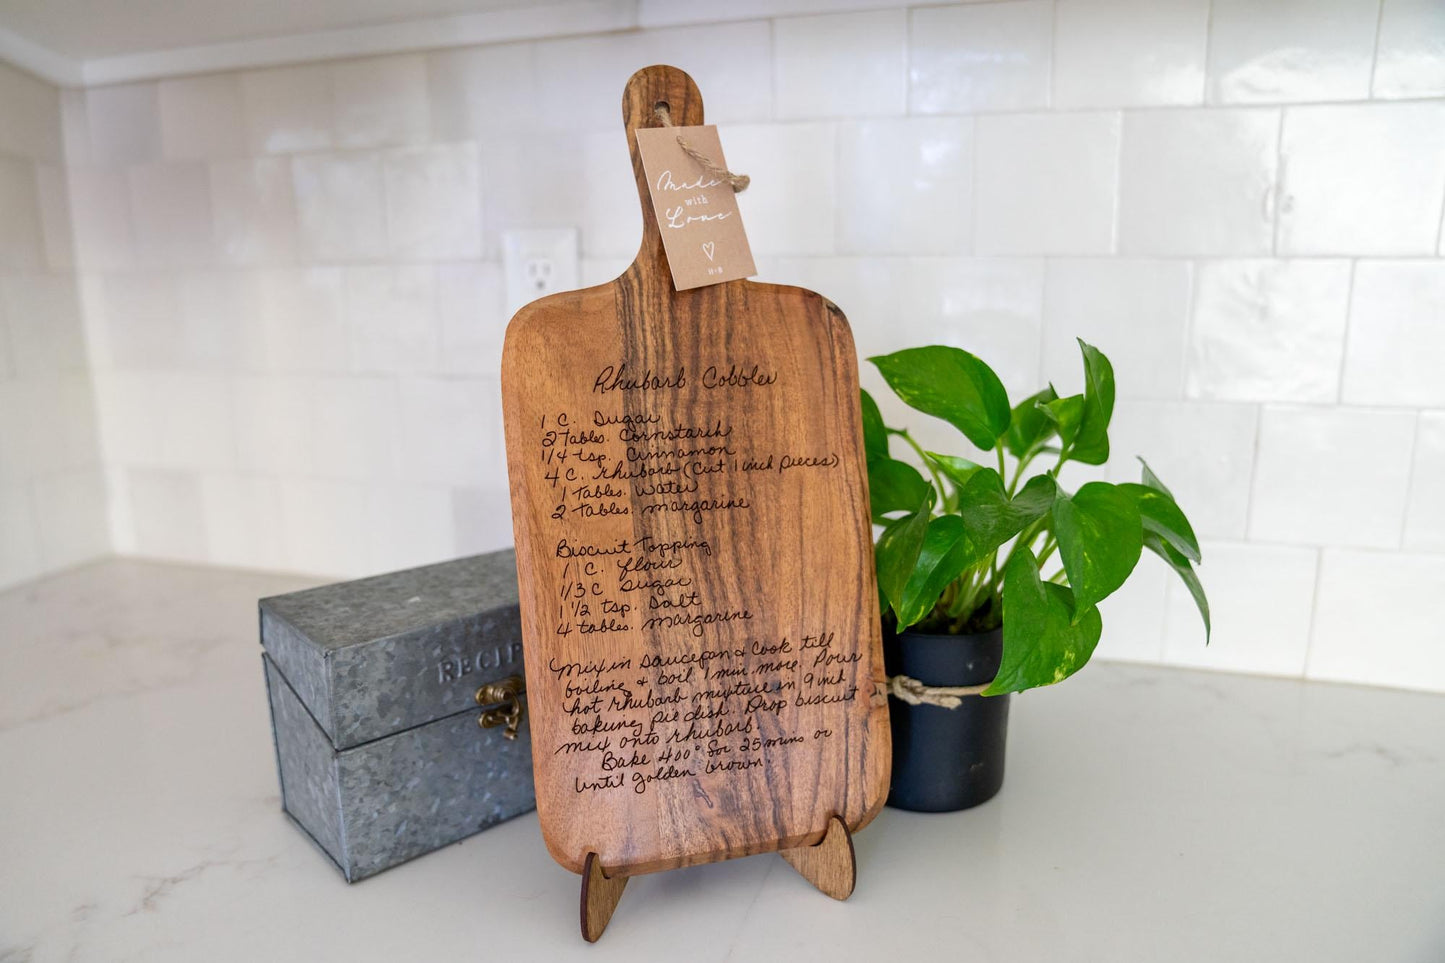 Made
with
Love
H+B
Rhubarb Cobbler
1 C. Sugar
2 Tables. Cornstarch
1/4 tsp. Cinnamon
4 C. rhubarb (Cut 1 inch pieces)
1 Tables. Water
2 tables. margarine
Biscuit Topping
1 C. flour
1/3 C Sugar
1 1/2 tsp. Salt
4 tables. margarine
Mix in saucepan & cook till
boiling & boil 1 min. more. Pour
hot rhubarb mixture in 9 inch
baking pie dish. Drop biscuit
mix onto rhubarb.
Bake 400° for 25 mins or
until golden brown.
RECIP